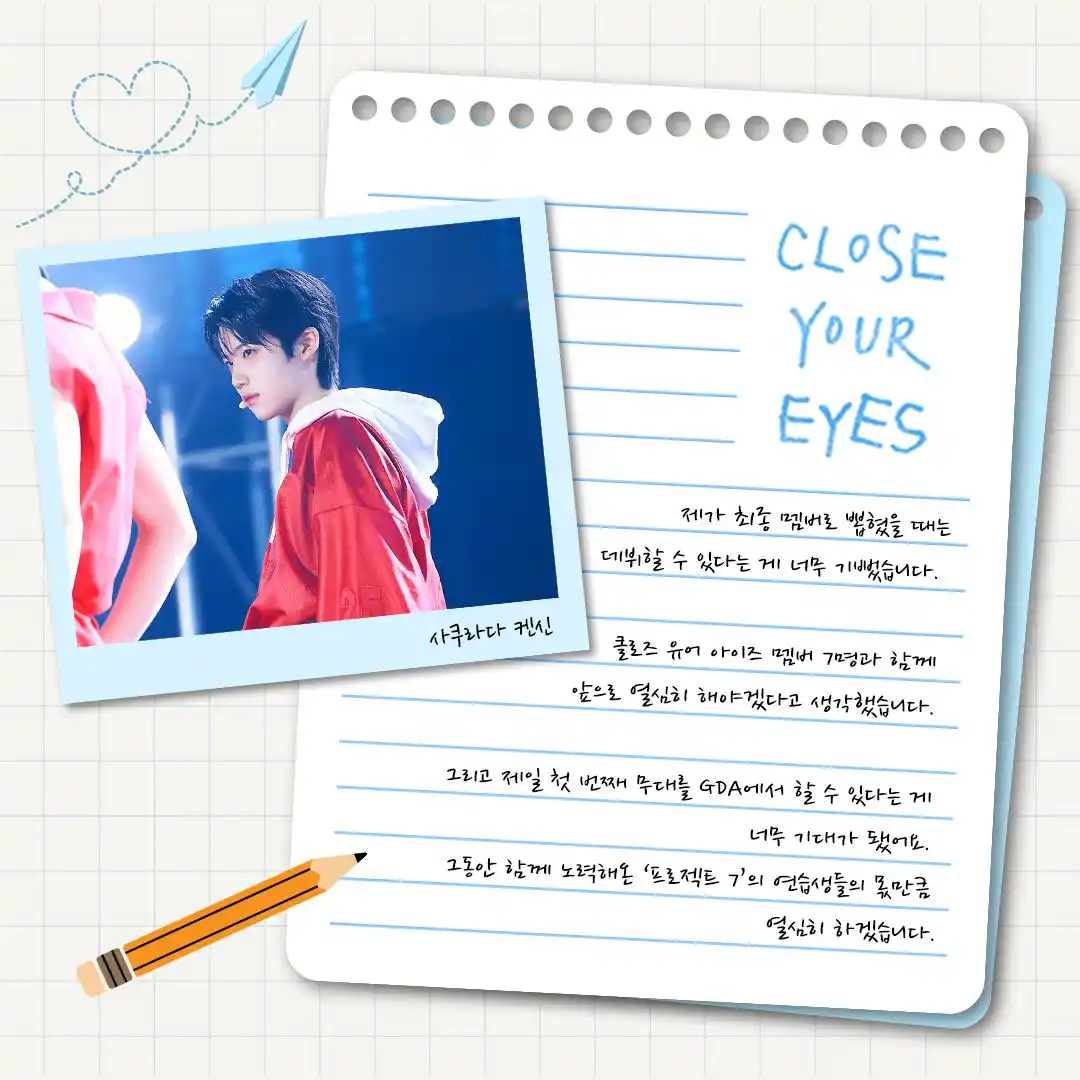 CLOSE
YOUR
EYES
제가 최종 멤버로 뽑혔을 때는
데뷔할 수 있다는 게 너무 기뻤습니다.
사쿠라다 켄신
클로즈 유어 아이즈 멤버 7명과 함께
앞으로 열심히 해야겠다고 생각했습니다.
그리고 제일 첫 번째 무대를 GDA에서 할 수 있다는 게
너무 기대가 됐어요.
그동안 함께 노력해온 ‘프로젝트 7’의 연습생들의 몫만큼
열심히 하겠습니다.